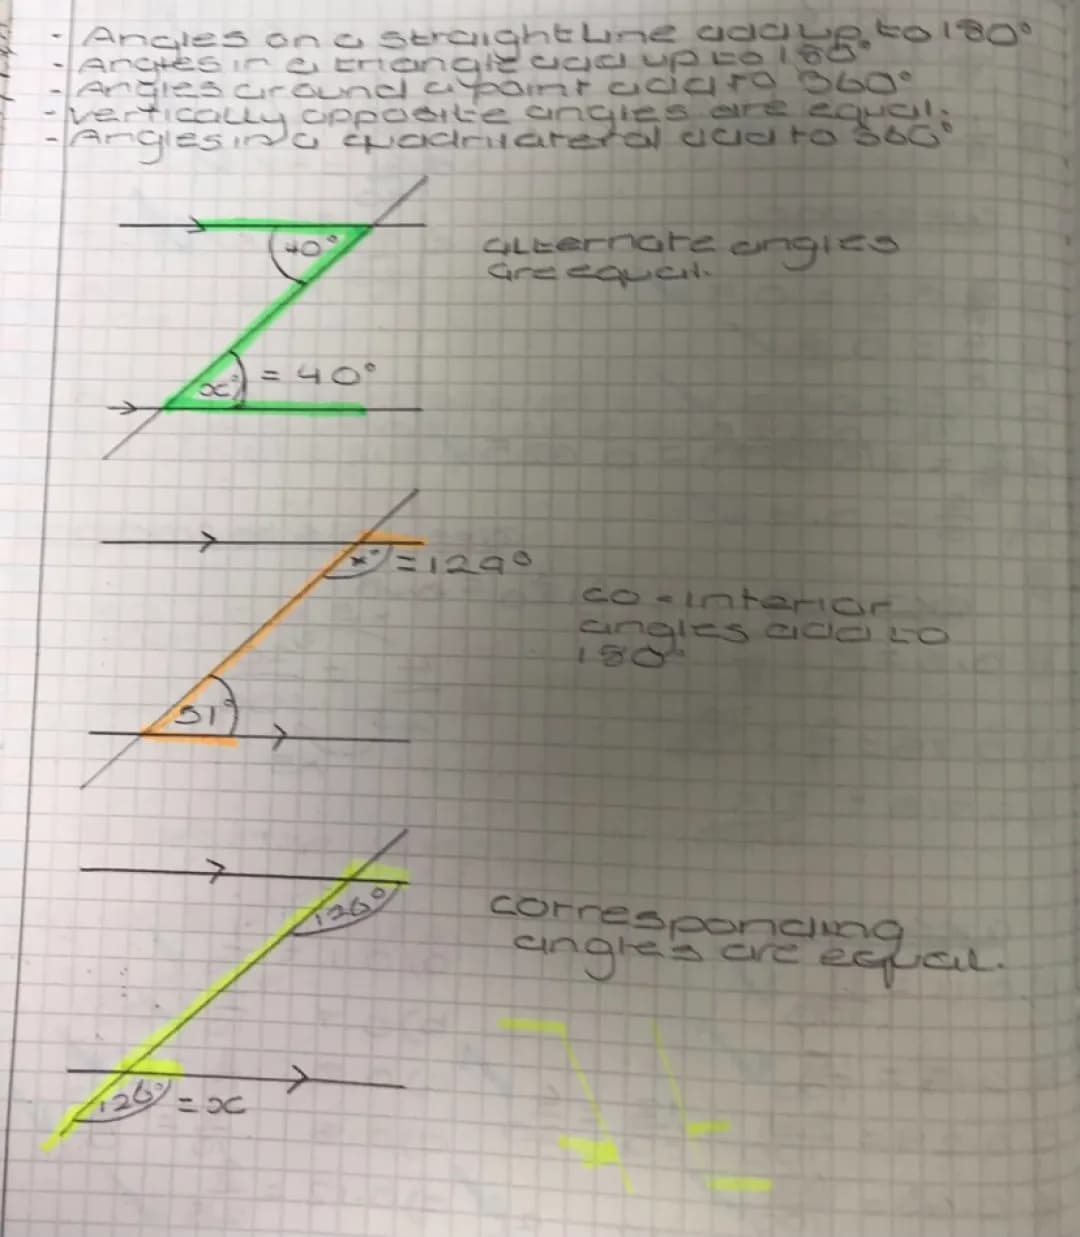 - Angles on a straight line add up to 180°
- Angles in a triangle add up to 180°
- Angles around a point add to 360°
- Vertically opposite angles are equal.
- Angles in a quadrilateral add to 360°
40°
alternate angles
are equal.
x° = 40°
x° = 129°
co-interior
angles add to
180°
51°
126°
corresponding
angles are equal.
126° = x